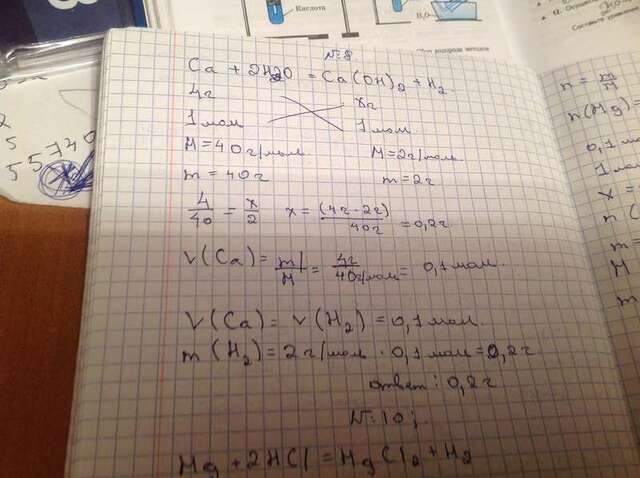 Кислота
H₂O
№ 8
Ca + 2H₂O = Ca(OH)₂ + H₂
4г xг
1 мол 1 мол
M = 40 г/мол. M = 2 г/мол.
m = 40 г m = 2 г
4/40 = x/2 x = (4г · 2г)/40г = 0,2г
V(Ca) = m/M = 4г/40г/мол = 0,1 мол.
V(Ca) = V(H₂) = 0,1 мол.
m(H₂) = 2 г/мол · 0,1 мол = 0,2г
ответ: 0,2г
№ 10;
Hg + 2HCl = HgCl₂ + H₂
n = m/M
n(Hg)
0,1 мо
1 мол
x =
n (
m =
M
m
5
55740